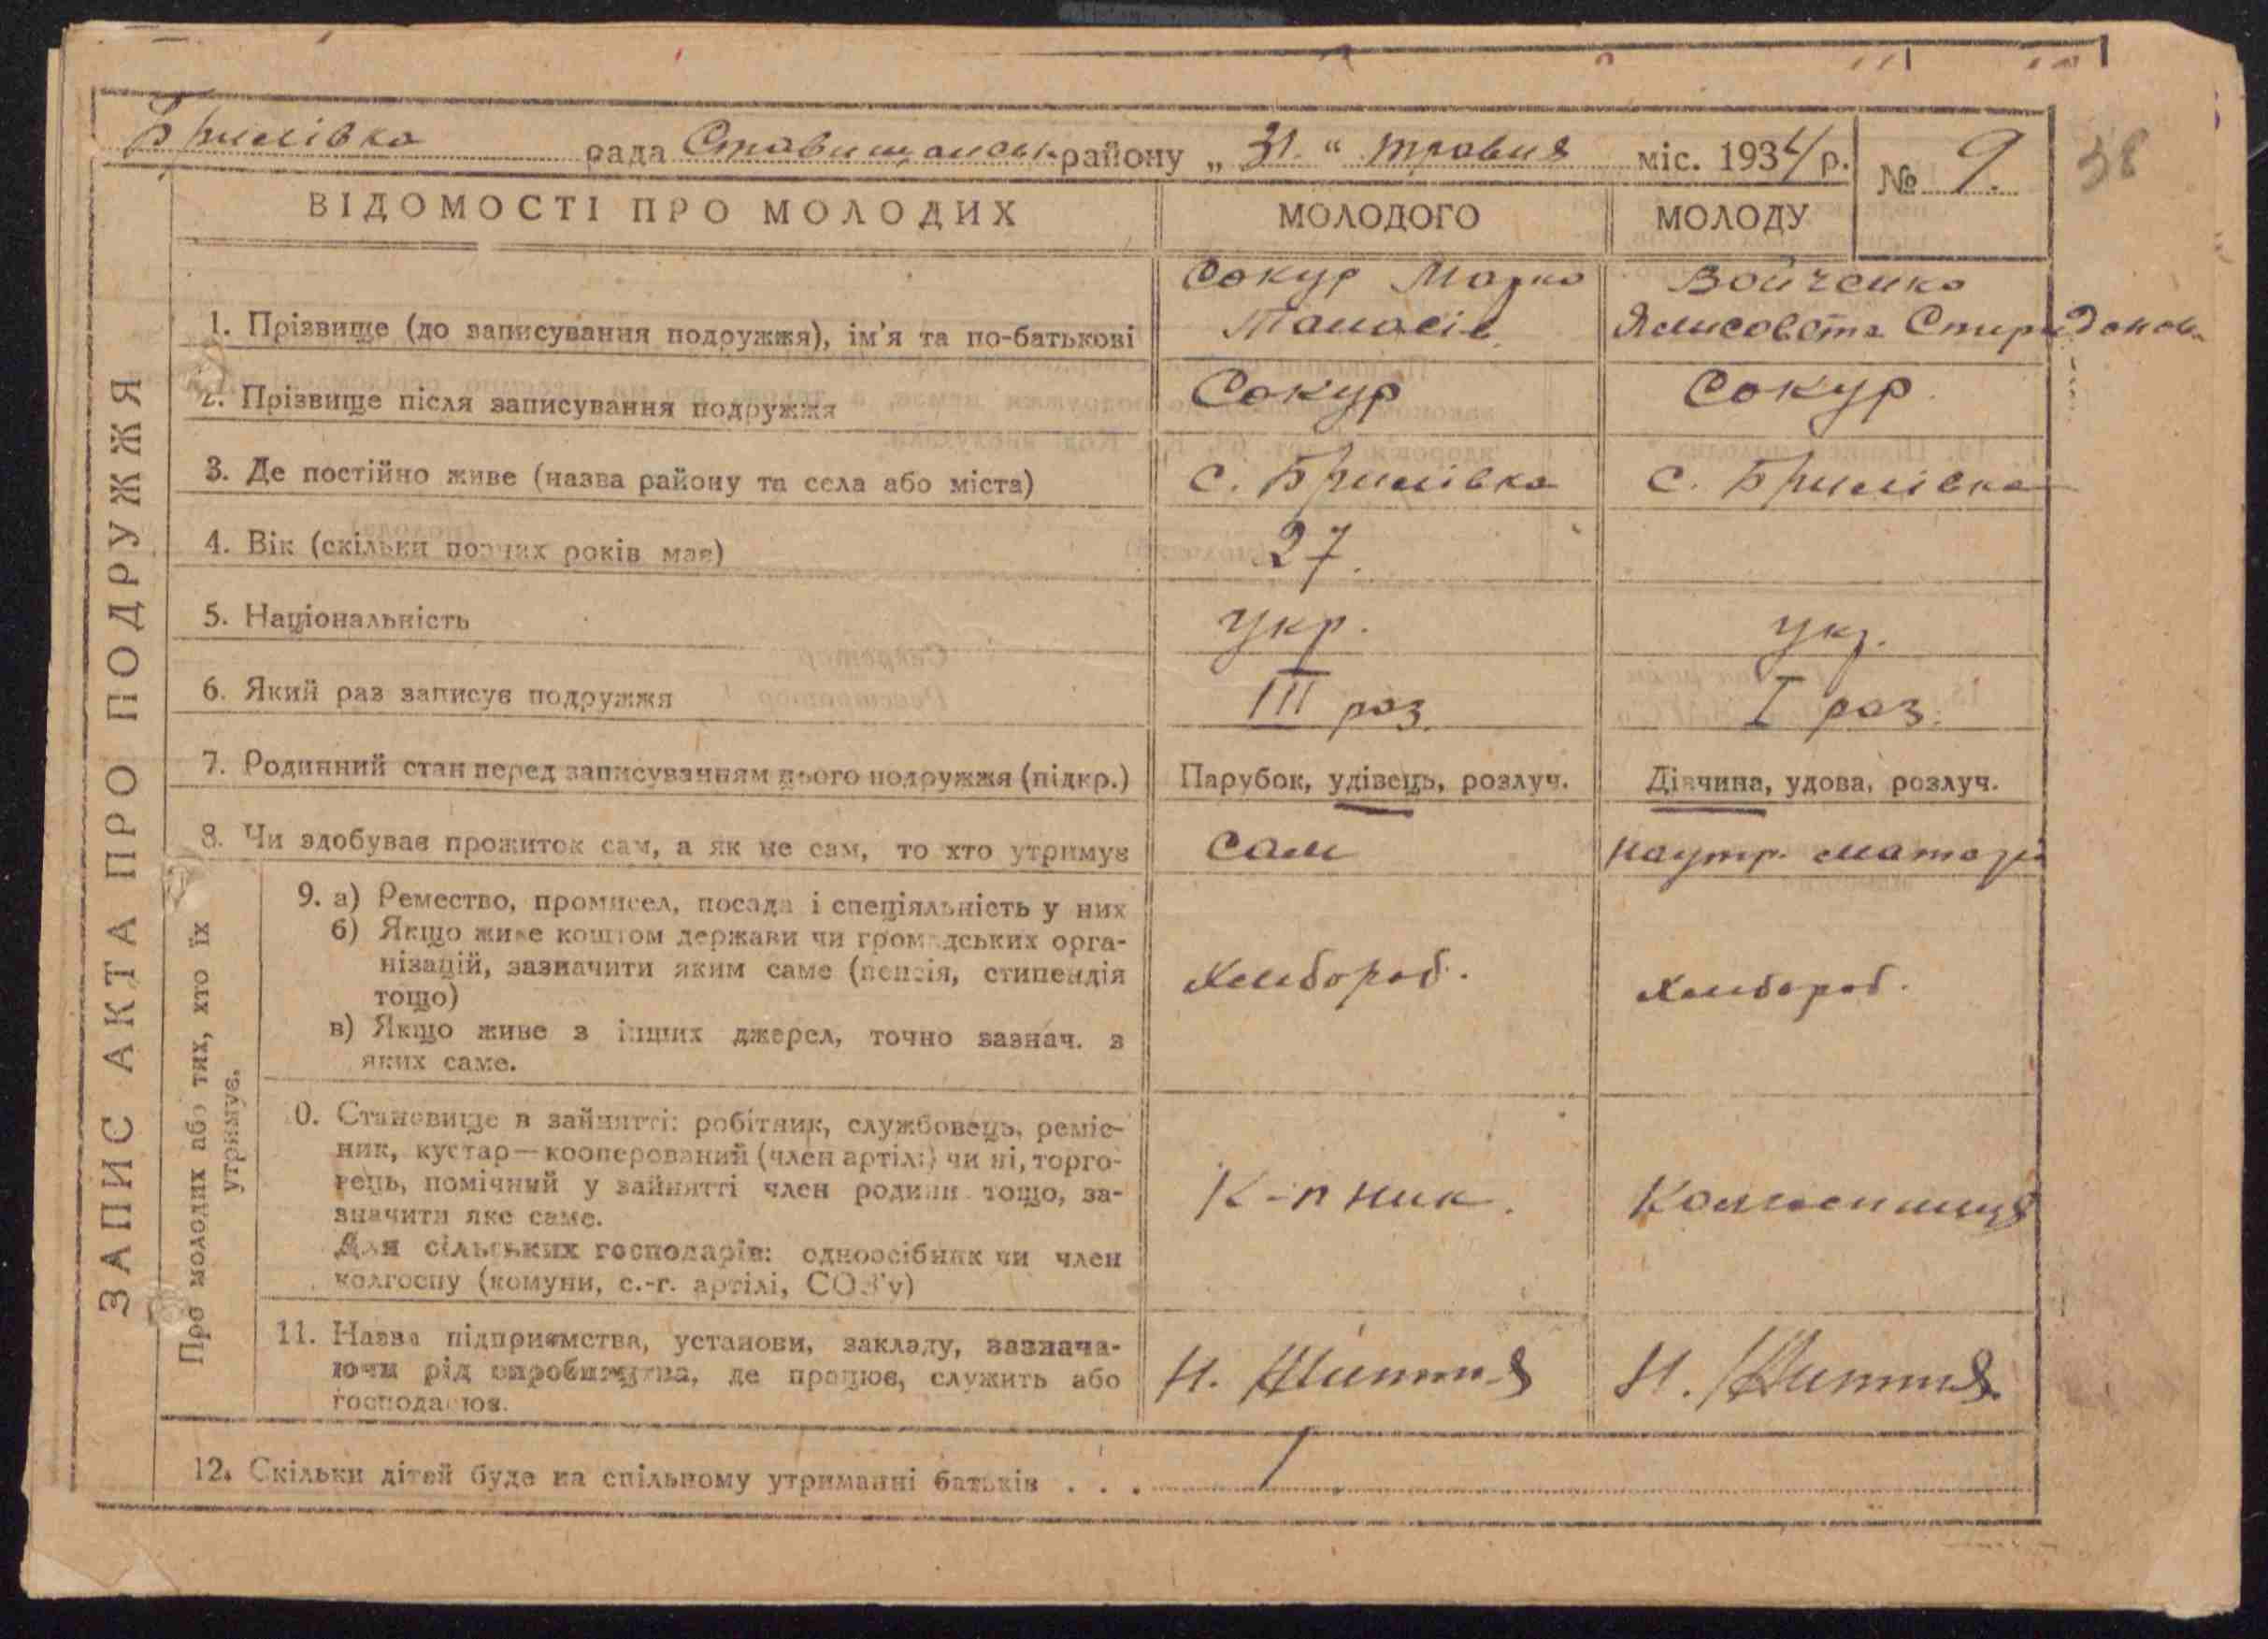 Бримівка рада Ставищанськ. району „31.“ травня міс. 1934 р. № 9.
38
ВІДОМОСТІ ПРО МОЛОДИХ МОЛОДОГО МОЛОДУ
ЗАПИС АКТА ПРО ПОДРУЖЖЯ
Сокур Марко Войченко
1. Прізвище (до записування подружжя), ім'я та по-батькові Танасів. Ялисовета Спиридонов.
2. Прізвище після записування подружжя Сокур Сокур.
3. Де постійно живе (назва району та села або міста) с. Бримівка с. Бримівка
4. Вік (скільки повних років має) 27.
5. Національність укр. укр.
6. Який раз записує подружжя III раз. I раз.
7. Родинний стан перед записуванням цього подружжя (підкр.) Парубок, удівець, розлуч. Дівчина, удова, розлуч.
8. Чи здобуває прожиток сам, а як не сам, то хто утримує сам наутр. матері
Про молодих або тих, хто їх
утримує.
9. а) Ремество, промисел, посада і спеціяльність у них
б) Якщо живе коштом держави чи громадських орга-
нізацій, зазначити яким саме (пенсія, стипендія
тощо)
хлібороб. хлібороб.
в) Якщо живе з інших джерел, точно зазнач. з
яких саме.
0. Становище в зайнятті: робітник, службовець, реміс-
ник, кустар—кооперований (член артілі) чи ні, торго-
вець, помічний у зайнятті член родини тощо, за-
значити яке саме.
К-п ник. Колгоспниця
Для сільських господарів: одноосібник чи член
колгоспу (комуни, с.-г. артілі, СОЗ'у)
11. Назва підприємства, установи, закладу, зазнача-
ючи рід виробництва, де працює, служить або
господарює.
Н. Життя Н. Життя.
12. Скільки дітей буде на спільному утриманні батьків . . . 1